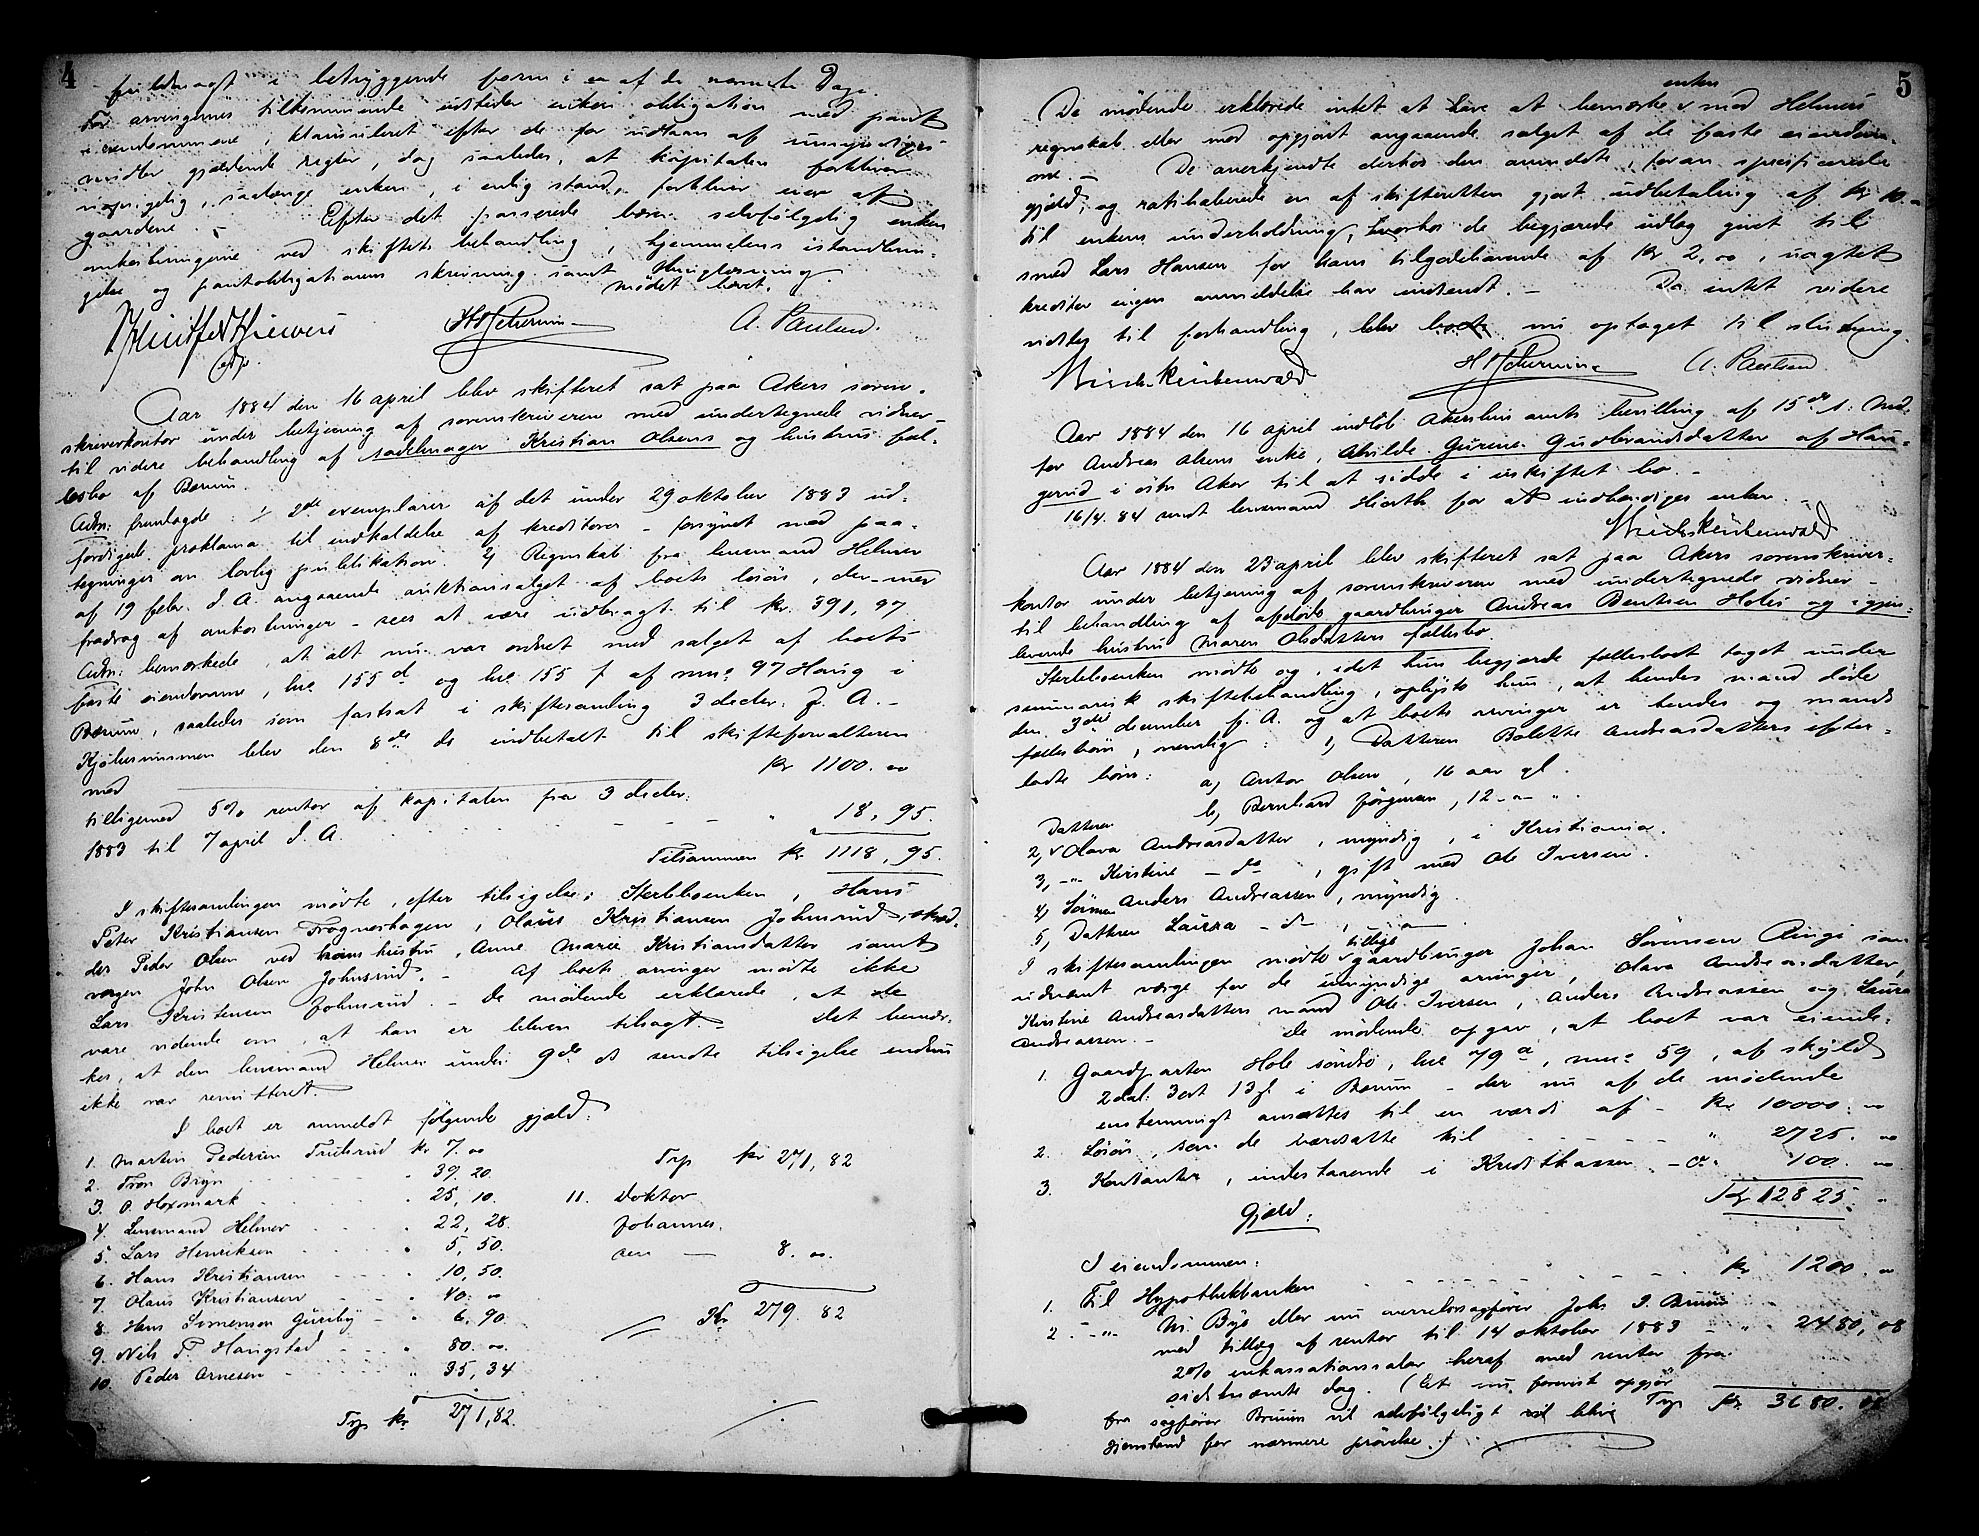 4
fuldbragt i betryggende form i en af de nærmeste Dage.
For arvingernes tilkommende udsteder enken obligation med pant
i eiendommene, klausuleret efter de for udlaan af umyndiges
midler gjældende regler, dog saaledes, at kapitalen forbliver
uopsigelig, saalænge enken, i enlig stand, forbliver eier af
gaardene. - Efter det passerede bærer selvfølgelig enken
omkostningerne ved skiftets behandling, hjemmelens istandbrin-
gelse og pantobligationens skrivning samt thinglæsning.
Mødet hævet.
A. Paulsen.
Aar 1884 den 16 april blev skifteret sat paa Akers soren-
skriverkontor under betjening af sorenskriveren med undertegnede vidner
til videre behandling af sadelmager Kristian Olsens og hustrus fæl-
lesbo af Bærum.
Adm: fremlagde: 1/ 2de exemplarer af det under 29 oktober 1883 ud-
færdigede proklama til indkaldelse af kreditorer - forsynet med paa-
tegninger om lovlig publikation. 2/ Regnskab fra lensmand Helmer
af 19 febr. d. A. angaaende auktionsalget af boets løsøre, der - med
fradrag af omkostninger - sees at være udbragt til kr. 391,97
Adm: bemærkede, at alt nu var ordnet med salget af boets
faste eiendomme, bre 155 d og bre 155 f af mno 97 Haug i
Bærum, saaledes som fastsat i skiftesamling 3 decbr. f. A. -
Kjøbesummen blev den 8de ds indbetalt til skifteforvalteren
med kr 1100. 00
tilligemed 5% renter af kapitalen fra 3 decbr.
1883 til 7 april d. A. - - - " 18,95.
Tilsammen kr. 1118,95.
I skiftesamlingen mødte, efter tilsigelse: Sterbboenken, Hans
Peter Kristiansen Frognerhagen, Olaus Kristiansen Johnsrud, skræd-
der Peder Olsen ved hans hustru, Anne Marie Kristiansdatter samt
værgen John Olsen Johnsrud. - Af boets arvinger mødte ikke
Lars Kristensen Johnsrud. - De mødende erklærede, at de
vare vidende om, at han er bleven tilsagt. - Det bemær-
kes, at den lensmand Helmer under 9de ds sendte tilsigelse endnu
ikke var remitteret.
I boet er anmeldt følgende gjæld:
1. Martin Pedersen Fridsrud kr 7.00
2. Fron Bryn - - - " 39.20
3. O. Hoxmark - - - " 25,10.
4. Lensmand Helmer - - - " 22,28.
5. Lars Henriksen - - - " 5,50.
6. Hans Kristiansen - - - " 10,50.
7. Olaus Kristiansen - - - " 40.00
8. Hans Simenson Gurihy - - " 6,90.
9. Nils P. Haugstad - - - " 80.00.
10. Peder Arnesen - - - " 35,34
Trp kr. 271,82.
Trp kr 271,82
11. Doktor
Johannes-
sen — 8.00.
Kr. 279.82
5
De mødende erklærede intet at have at bemærke enten ved med Helmers
regnskab eller med opgjøret angaaende salget af de faste eiendom-
me. - De anerkjendte derhos den anmeldte, foran specificerede
gjæld, og ratihaberede en af skifteretten gjort udbetaling af kr 10.-
til enkens underholdning, hvorhos de begjærede udlæg givet til
smed Lars Hansen for hans tilgodehavende af kr 2,00, uagtet
kreditor ingen anmeldelse har indsendt. - Da intet videre
vidstes til forhandling, blev boets nu optaget til slutning.
A. Paulsen.
Aar 1884 den 16 april indløb Akershus amts bevilling af 15de ds: med-
for Andreas Olsens enke, Alvilde Gurine Gudbrandsdatter af Hau-
gerud i østre Aker til at sidde i uskiftet bo. -
16/4. 84 sendt lensmand Hiorth for at indhændiges enken. -
Aar 1884 den 23 april blev skifteret sat paa Akers sorenskriver-
kontor under betjening af sorenskriveren med undertegnede vidner -
til behandling af afdøde gaardbruger Andreas Bentsen Hole's og igjen-
levende hustru Maren Olsdatters fællesbo.
Sterbboenken mødte og, idet hun begjærede fællesboet taget under
summarisk skiftebehandling, oplyste hun, at hendes mand døde
den 3die december f. A. og at boets arvinger er hendes og mands
fællesbørn, nemlig: 1, Datteren Bolette Andreasdatters efter-
ladte børn:
a, Anton Olsen, 16 aar gl.
b, Bernhard Jørgensen, 12 -"- ".
2, Datteren Olava Andreasdatter, myndig, i Kristiania.
3, -"- Kirstine - do , gift med Ole Iversen.
4, Sønnen Anders Andreassen, myndig.
5, Datteren Laura - do , -"-
I skiftesamlingen mødte tillige gaardbruger Johan Sørensen Ringi som
udnævnt værge for de umyndige arvinger, Olava Andreasdatter,
Kirstine Andreasdatters mand Ole Iversen, Anders Andreassen og Laura
Andreassen. - De mødende opgav, at boet var eiende:
1. Gaardparten Hole søndre, bre 79 a, mno 59, af skyld
2 dal. 3 ort 13 s. i Bærum - der nu af de mødende
enstemmigt ansættes til en værdi af - kr. 10000.00
2. Løsøre, som de værdsatte til - - - " 2725.00
3. Kontanter, indestaaende i Kreditkassen - ca. 100.00
Kr. 12825. "
Gjæld:
I eiendommen:
1. Til Hypothekbanken - - - kr. 1200.00
2. -"- N. Bye eller nu overretssagfører Johs J. Bruun
med tillæg af renter til 14 oktober 1883 - " 2480,08
2% inkassationssalær heraf med renter fra
sidstnævnte dag. (Et nu forevist opgjør
fra sagfører Bruun vil selvfølgeligt vil blive Trp kr. 3680.08
gjenstand for nærmere prøvelse.)